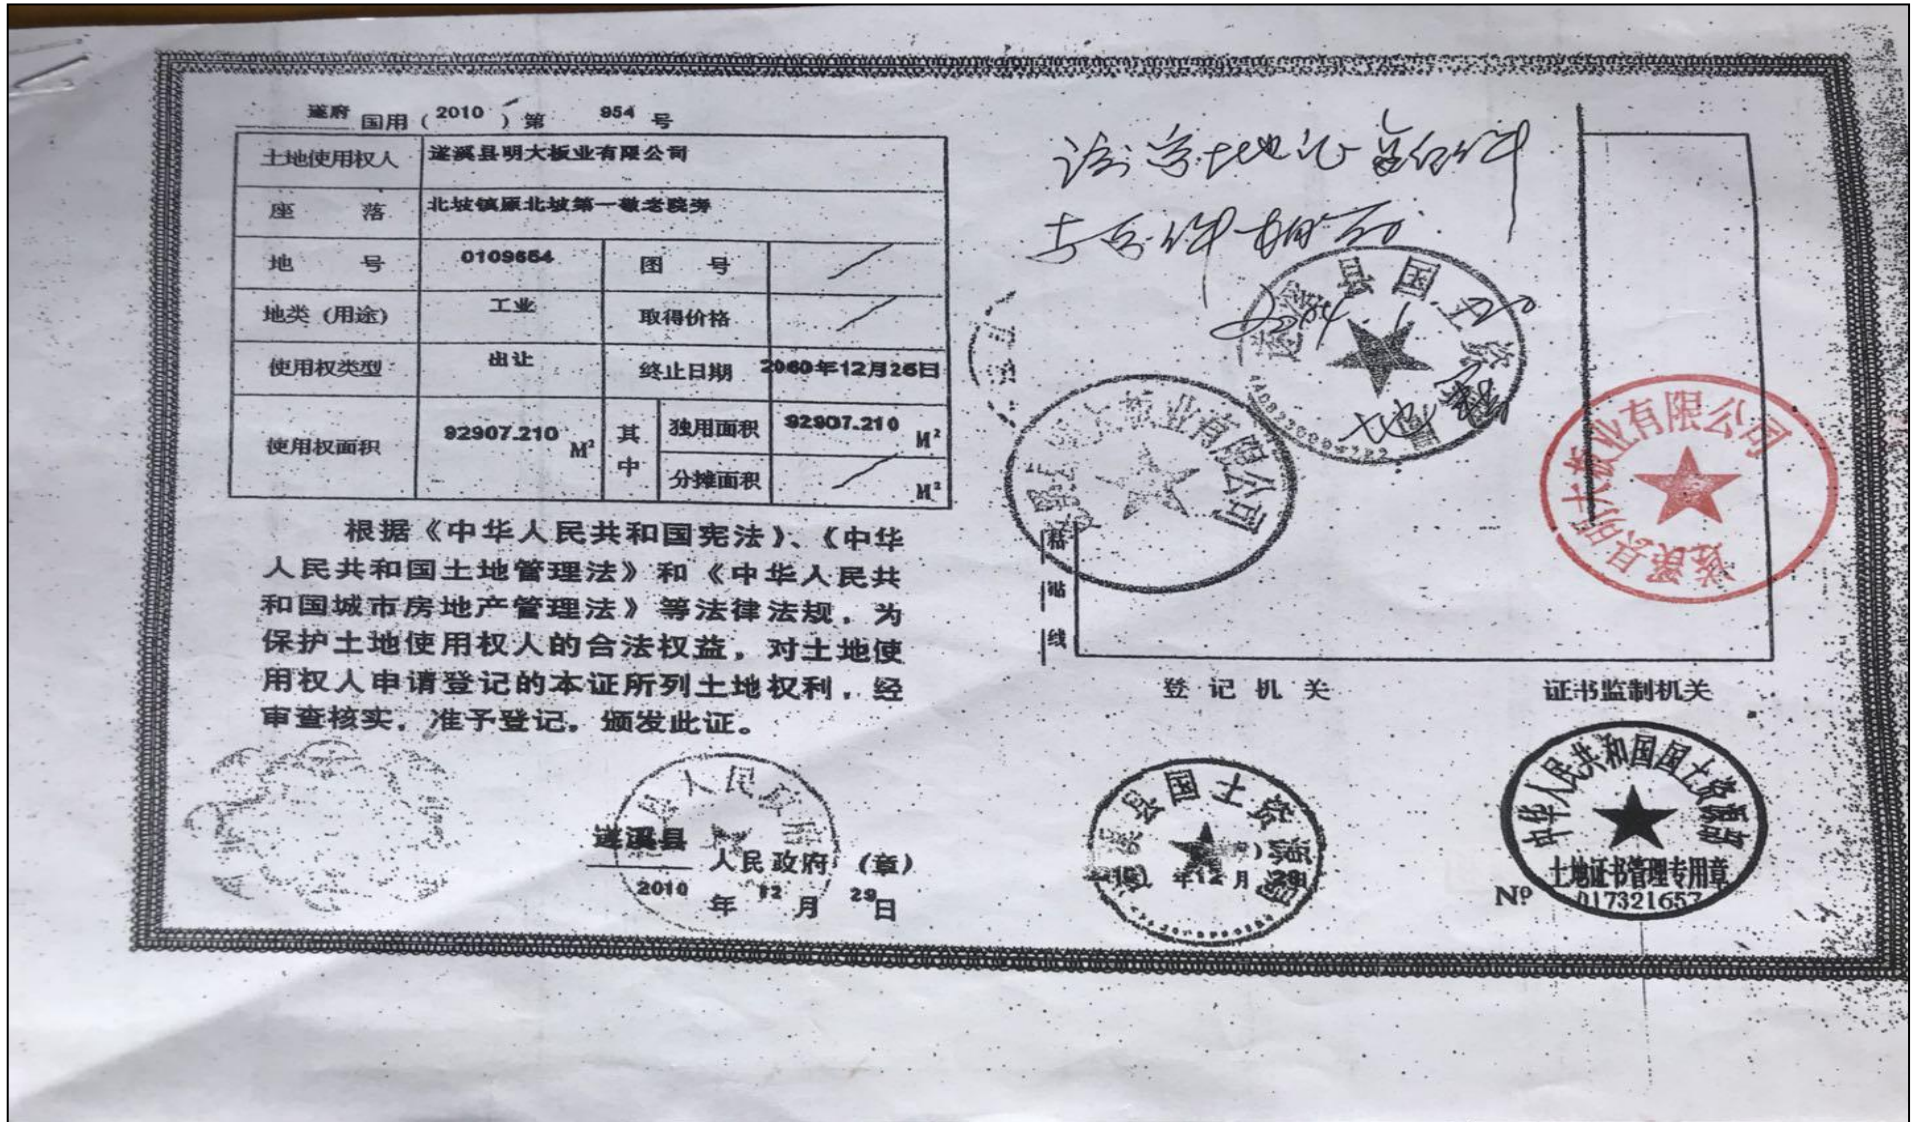 遂府 国用（2010）第 954 号
土地使用权人 遂溪县明大板业有限公司
座 落 北坡镇原北坡第一敬老院旁
地 号 0109654 图 号
地类（用途） 工业 取得价格
使用权类型 出让 终止日期 2060年12月26日
使用权面积 92907.210 M² 其中 独用面积 92907.210 M²
分摊面积 M²
根据《中华人民共和国宪法》、《中华
人民共和国土地管理法》和《中华人民共
和国城市房地产管理法》等法律法规，为
保护土地使用权人的合法权益，对土地使
用权人申请登记的本证所列土地权利，经
审查核实，准予登记，颁发此证。
遂溪县
人民政府（章）
2010 年 12 月 29 日
县人民政府
与原件相符
遂溪县国土资
地籍
大板业有限公司
遂溪县明大板业有限公司
粘贴线
登记机关
遂溪县国土资源局
年12月29日
证书监制机关
中华人民共和国国土资源部
土地证书管理专用章
Nº 017321657